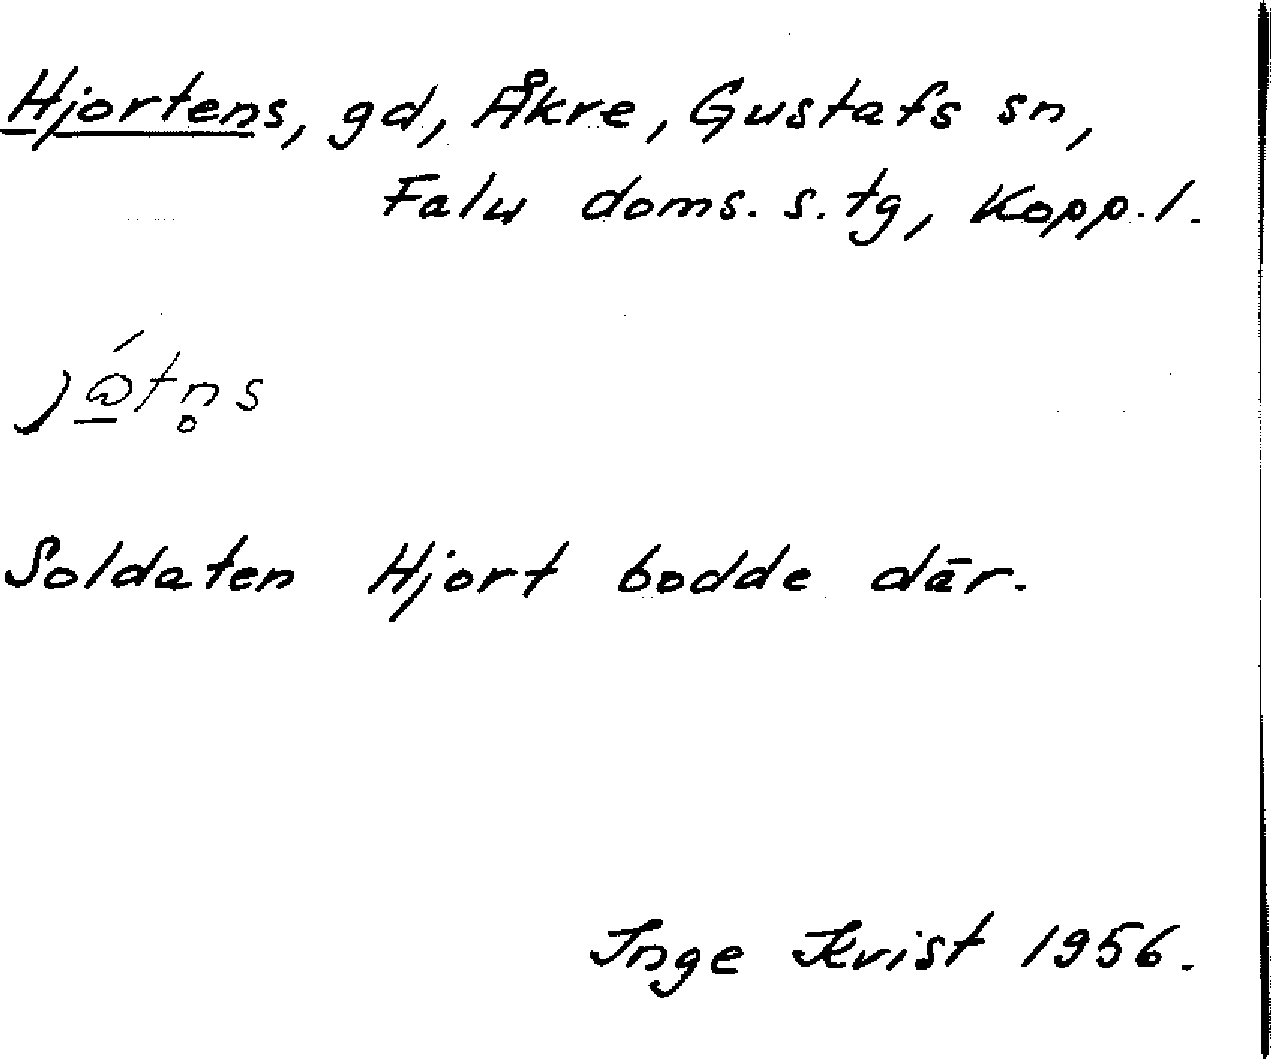 Hjortens, gd, Åkre, Gustafs sn,
Falu doms. s. tg, Kopp. l.
Soldaten Hjort bodde där.
Inge Kvist 1956.